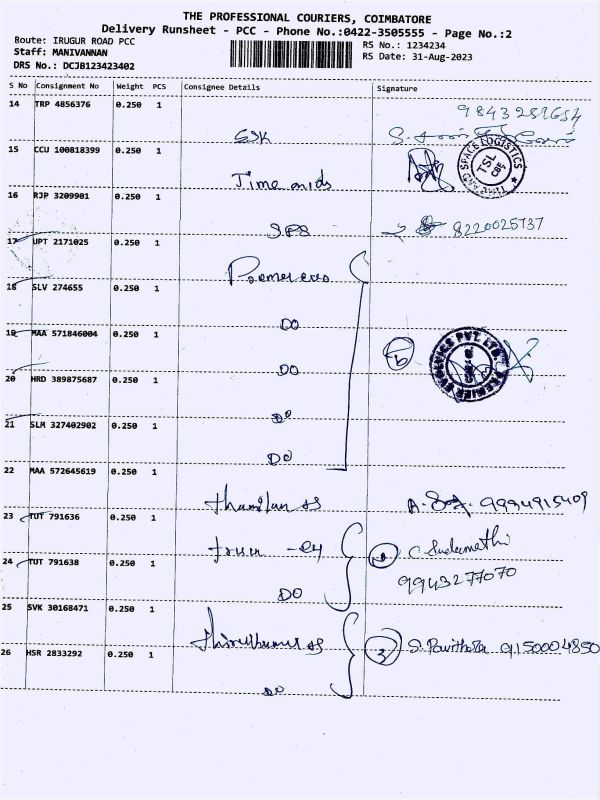 THE PROFESSIONAL COURIERS, COIMBATORE
Delivery Runsheet - PCC - Phone No.:0422-3505555 - Page No.:2
Route: IRUGUR ROAD PCC
Staff: MANIVANNAN
DRS No.: DCJB123423402
RS No.: 1234234
RS Date: 31-Aug-2023
S No Consignment No Weight PCS Consignee Details Signature
14 TRP 4856376 0.250 1
15 CCU 100818399 0.250 1
SPACE LOGISTICS
TSL
CBE
Time aids
16 RJP 3209901 0.250 1
8220025737
17 UPT 2171025 0.250 1
18 SLV 274655 0.250 1
DO
19 MAA 571846004 0.250 1
DO
6
20 HRD 389875687 0.250 1
DO
21 SLM 327402902 0.250 1
DO
22 MAA 572645619 0.250 1
9994915409
23 TUT 791636 0.250 1
24 TUT 791638 0.250 1
9943277070
DO
25 SVK 30168471 0.250 1
26 HSR 2833292 0.250 1
S. Pavithra 9150004850
DO